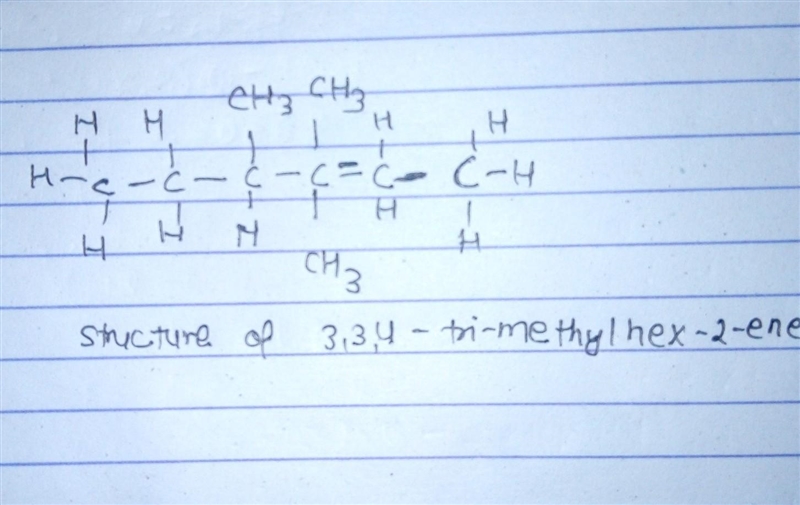 CH3 CH3
H H H H
H-C-C-C-C=C-C-H
H H H H H
CH3
structure of 3,3,4-tri-methylhex-2-ene